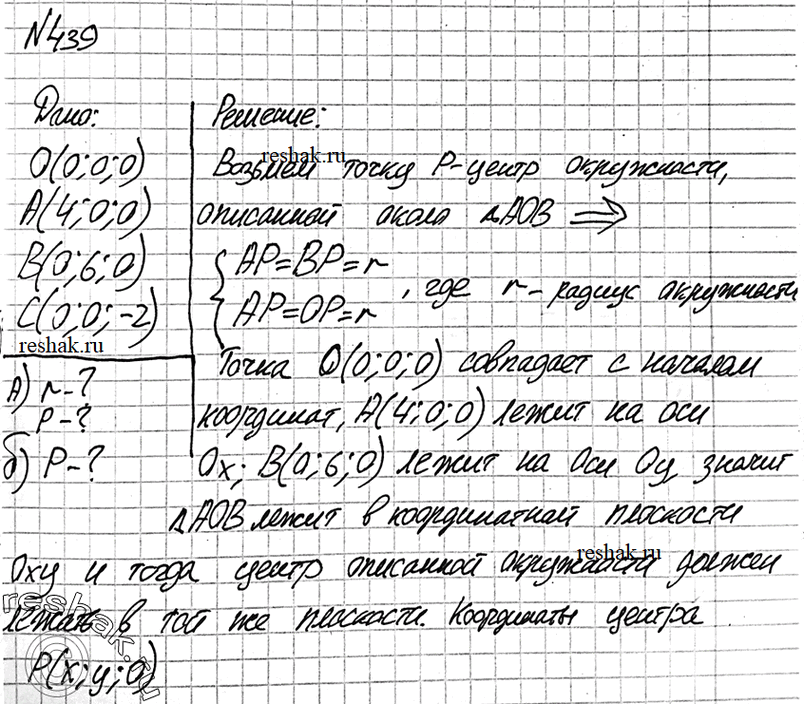 №439
Дано:
O(0;0;0)
A(4;0;0)
B(0;6;0)
C(0;0;-2)
reshak.ru
а) r-?
P-?
б) P-?
Решение:
Возьмем точку P-центр окружности,
reshak.ru
описанной около ΔAOB ⟹
{ AP=BP=r
AP=OP=r , где r- радиус окружности
Точка O(0;0;0) совпадает с началом
координат, A(4;0;0) лежит на оси
Ox; B(0;6;0) лежит на Оси Oy значит
ΔAOB лежит в координатной плоскости
reshak.ru
Oxy и тогда центр описанной окружности должен
лежать в той же плоскости. Координаты центра
P(x;y;0)
reshak.ru